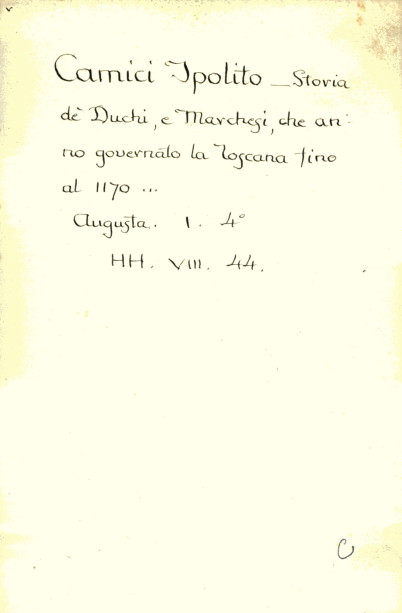 Camici Ipolito — Storia
de' Duchi, e Marchesi, che an-
no governato la Toscana fino
al 1170 ...
Augusta. 1. 4°
HH. VIII. 44.
C